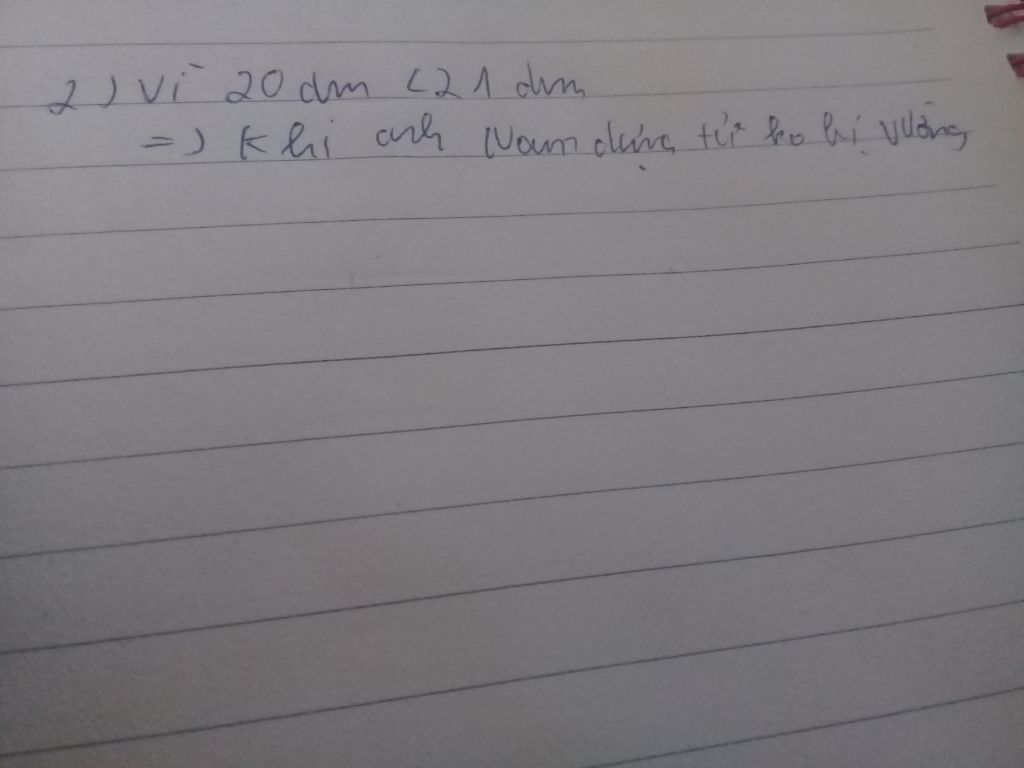 2) Vì 20 dm < 21 dm
=> Khi anh Nam dựng tủ ko bị vướng